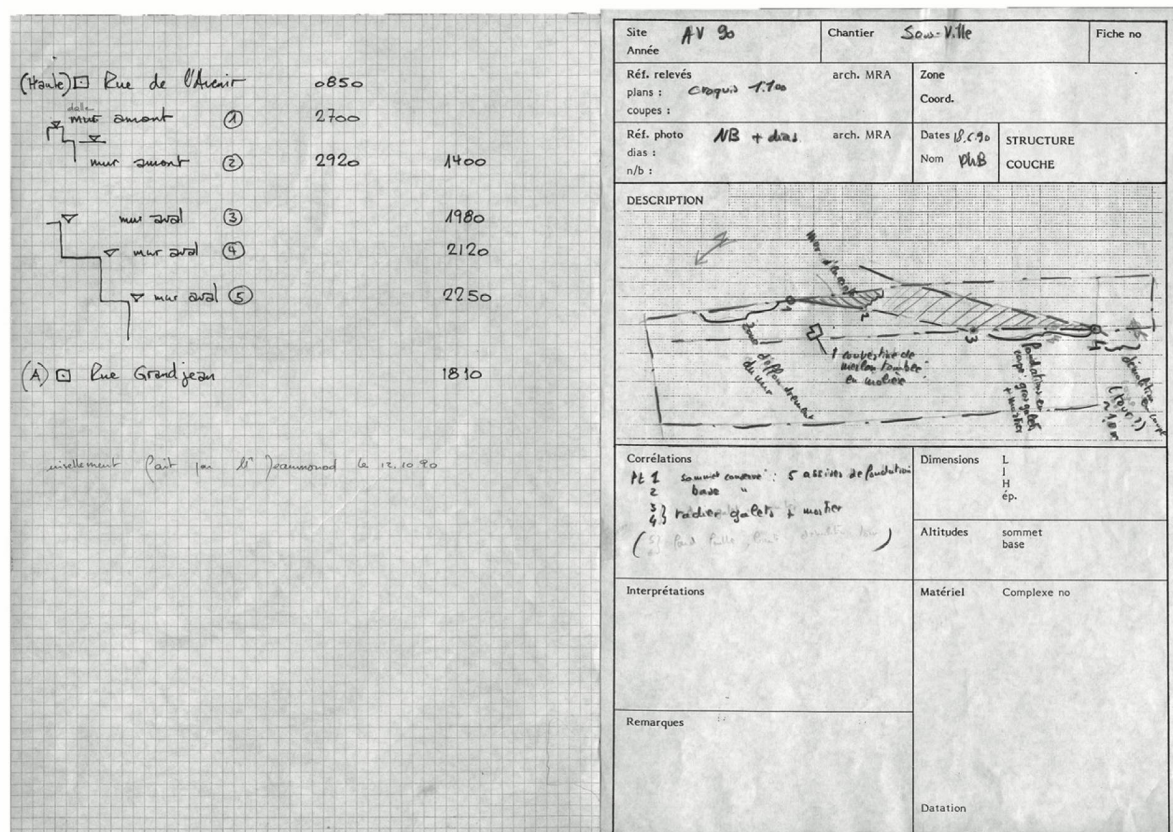 (Haute) Rue de l'Avenir 0850
dalle
mur amont 1 2700
mur amont 2 2920 1400
mur aval 3 1980
mur aval 4 2120
mur aval 5 2250
(A) Rue Grandjean 1810
nivellement fait par Mr Jeanmonod le 12.10.90
Site AV 90
Année
Chantier Sous-Ville
Fiche no
Réf. relevés arch. MRA
plans : croquis 1:100
coupes :
Zone
Coord.
Réf. photo NB + dias arch. MRA
dias :
n/b :
Dates 18.6.90
Nom PhB
STRUCTURE
COUCHE
DESCRIPTION
mur
1
2
3
4
Zone d'effondrement
du mur
1 couvertine de
merlon tombée
en molasse
fondations en
gros galets
+ mortier
démolition en coupe
(tour?)
Corrélations
Pt 1 sommet conservé : 5 assises de fondation
2 base "
3
4 } radier galets + mortier
Dimensions L
l
H
ép.
Altitudes sommet
base
Interprétations
Matériel Complexe no
Remarques
Datation